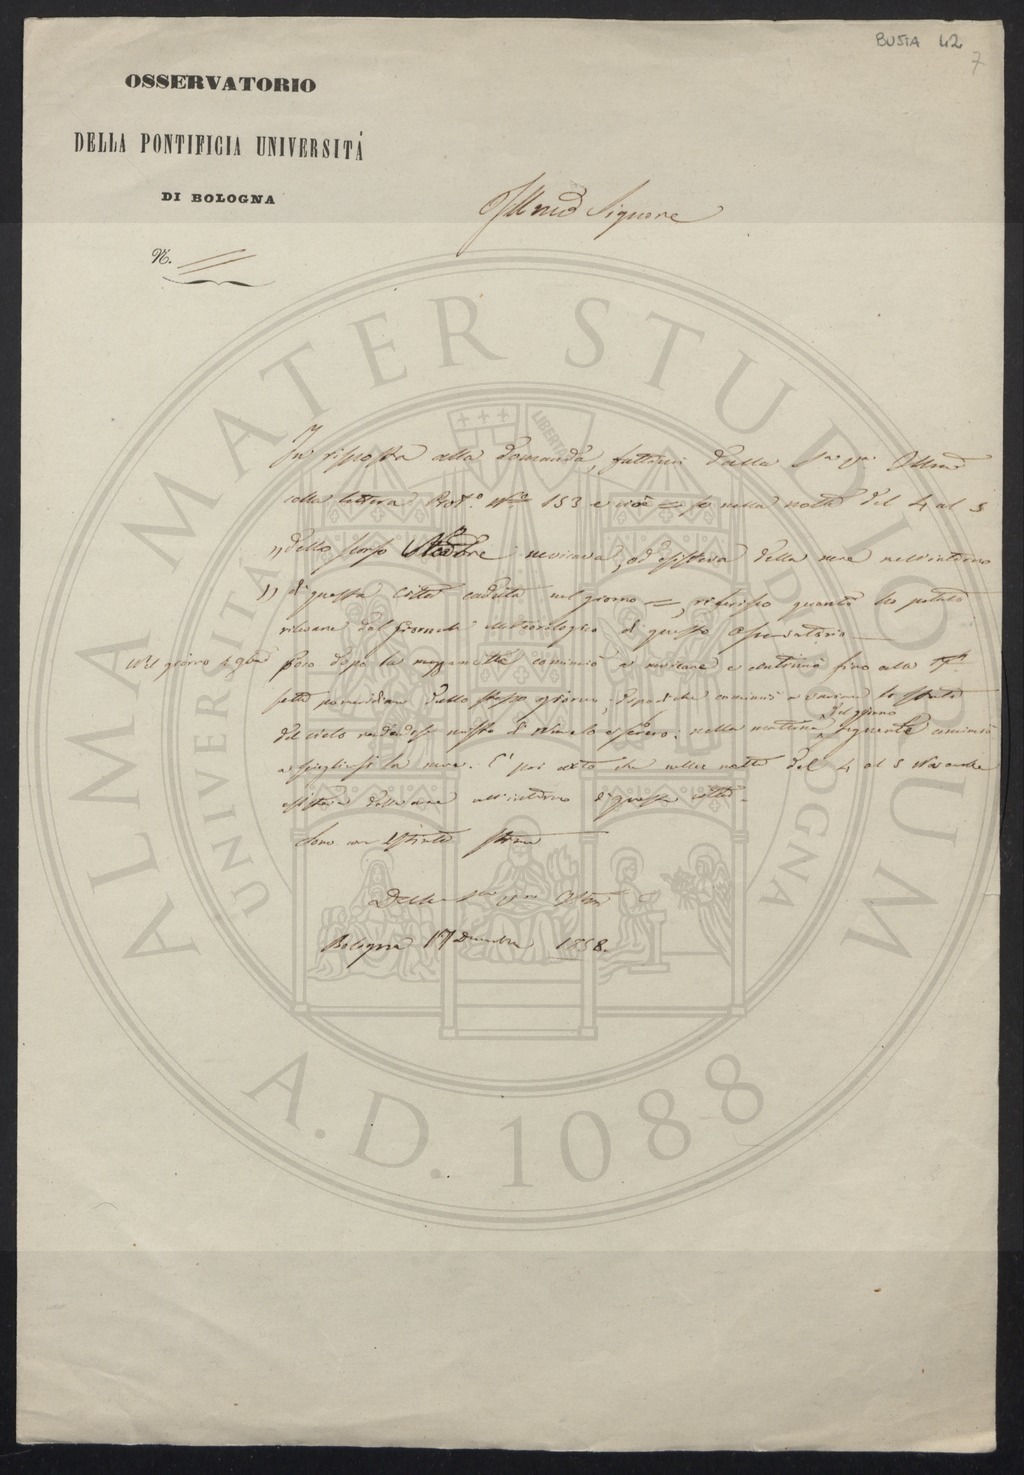 BUSTA 42
7
OSSERVATORIO
DELLA PONTIFICIA UNIVERSITÁ
DI BOLOGNA
N.
Illmo Signore
In risposta alla domanda, fattami dalla Illma
colla lettera Prot.o N.o 153 e cioè = se nella notte del 4 al 5
" dello scorso 9bre nevicava, od esisteva della neve nell'interno
" di questa città caduta nel giorno =, riferisco quanto ho potuto
rilevare dal Giornale Meteorologico di questo Osservatorio
Nel giorno 4 9bre poco dopo la mezzanotte cominciò a nevicare e continuò fino alle
pomeridiane dello stesso giorno; dopo di che cominciò a variare lo stato
del cielo rendendosi misto di nuvolo e sereno: nella mattina del giorno seguente cominciò
a sciogliersi la neve. E' poi certo che nella notte del 4 al 5 Novembre
esisteva della neve nell'interno di questa città.
Sono con distinta stima
Della
Bologna 17 Dicembre 1858.
ALMA MATER STUDIORUM
UNIVERSITÀ DI BOLOGNA
LIBERTAS
A.D. 1088